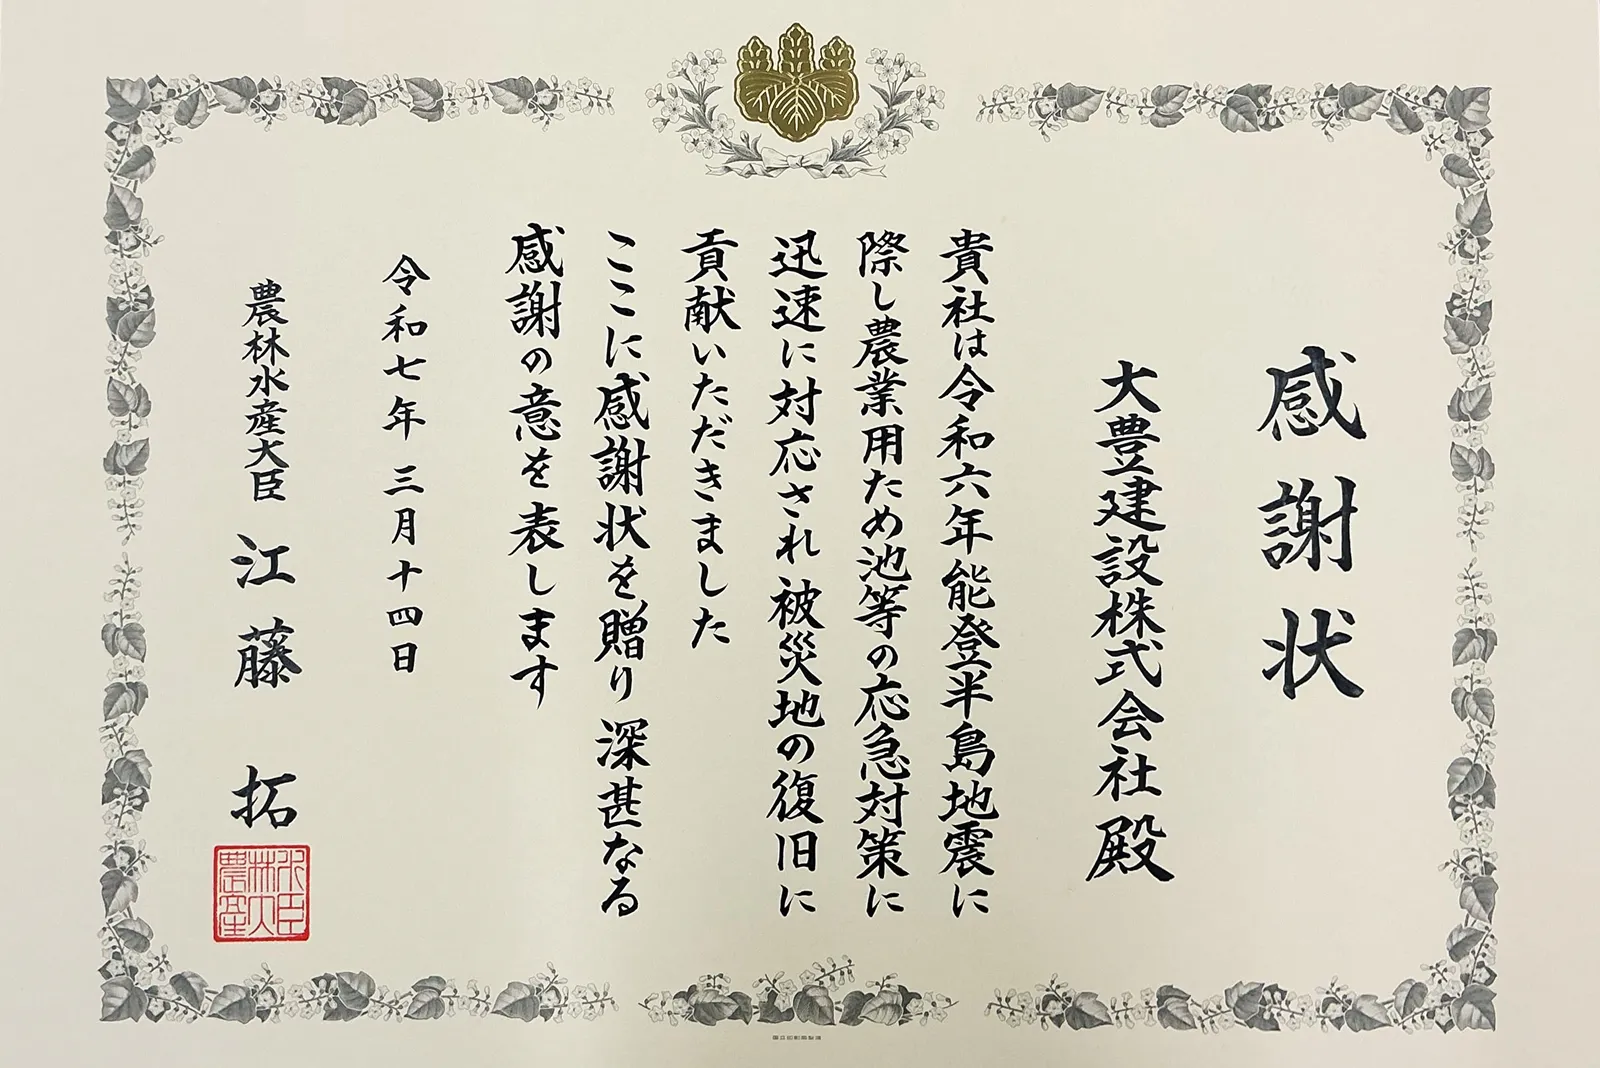 感謝状
大豊建設株式会社殿
貴社は令和六年能登半島地震に
際し農業用ため池等の応急対策に
迅速に対応され被災地の復旧に
貢献いただきました
ここに感謝状を贈り深甚なる
感謝の意を表します
令和七年三月十四日
農林水産大臣 江藤 拓